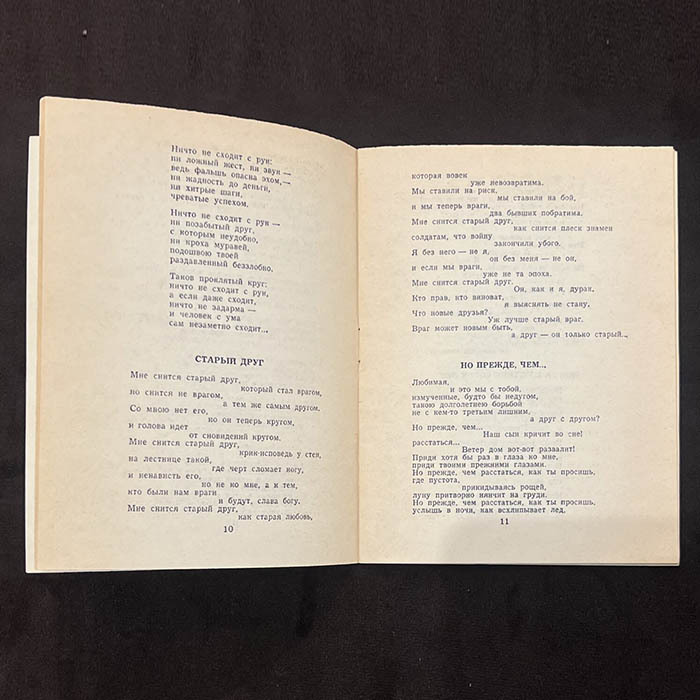 Ничто не сходит с рук:
ни ложный жест, ни звук —
ведь фальшь опасна эхом,—
ни жадность до деньги,
ни хитрые шаги,
чреватые успехом.
Ничто не сходит с рук —
ни позабытый друг,
с которым неудобно,
ни кроха муравей,
подошвою твоей
раздавленный беззлобно.
Таков проклятый круг:
ничто не сходит с рук,
а если даже сходит,
ничто не задарма —
и человек с ума
сам незаметно сходит...
СТАРЫЙ ДРУГ
Мне снится старый друг,
который стал врагом,
но снится не врагом,
а тем же самым другом.
Со мною нет его,
но он теперь кругом,
и голова идет
от сновидений кругом.
Мне снится старый друг,
крик-исповедь у стен,
на лестнице такой,
где черт сломает ногу,
и ненависть его,
но не ко мне, а к тем,
кто были нам враги
и будут, слава богу.
Мне снится старый друг,
как старая любовь,
10
которая вовек
уже невозвратима.
Мы ставили на риск,
мы ставили на бой,
и мы теперь враги,
два бывших побратима.
Мне снится старый друг,
как снится плеск знамен
солдатам, что войну
закончили убого.
Я без него — не я,
он без меня — не он,
и если мы враги,
уже не та эпоха.
Мне снится старый друг.
Он, как и я, дурак.
Кто прав, кто виноват,
я выяснять не стану.
Что новые друзья?
Уж лучше старый враг.
Враг может новым быть,
а друг — он только старый...
НО ПРЕЖДЕ, ЧЕМ...
Любимая,
и это мы с тобой,
измученные, будто бы недугом,
такою долголетнею борьбой
не с кем-то третьим лишним,
а друг с другом?
Но прежде, чем...
Наш сын кричит во сне!
расстаться...
Ветер дом вот-вот развалит!
Приди хотя бы раз в глаза ко мне,
приди твоими прежними глазами.
Но прежде, чем расстаться, как ты просишь,
где пустота,
прикидываясь рощей,
луну притворно нянчит на груди.
Но прежде, чем расстаться, как ты просишь,
услышь в ночи, как всхлипывает лед,
11